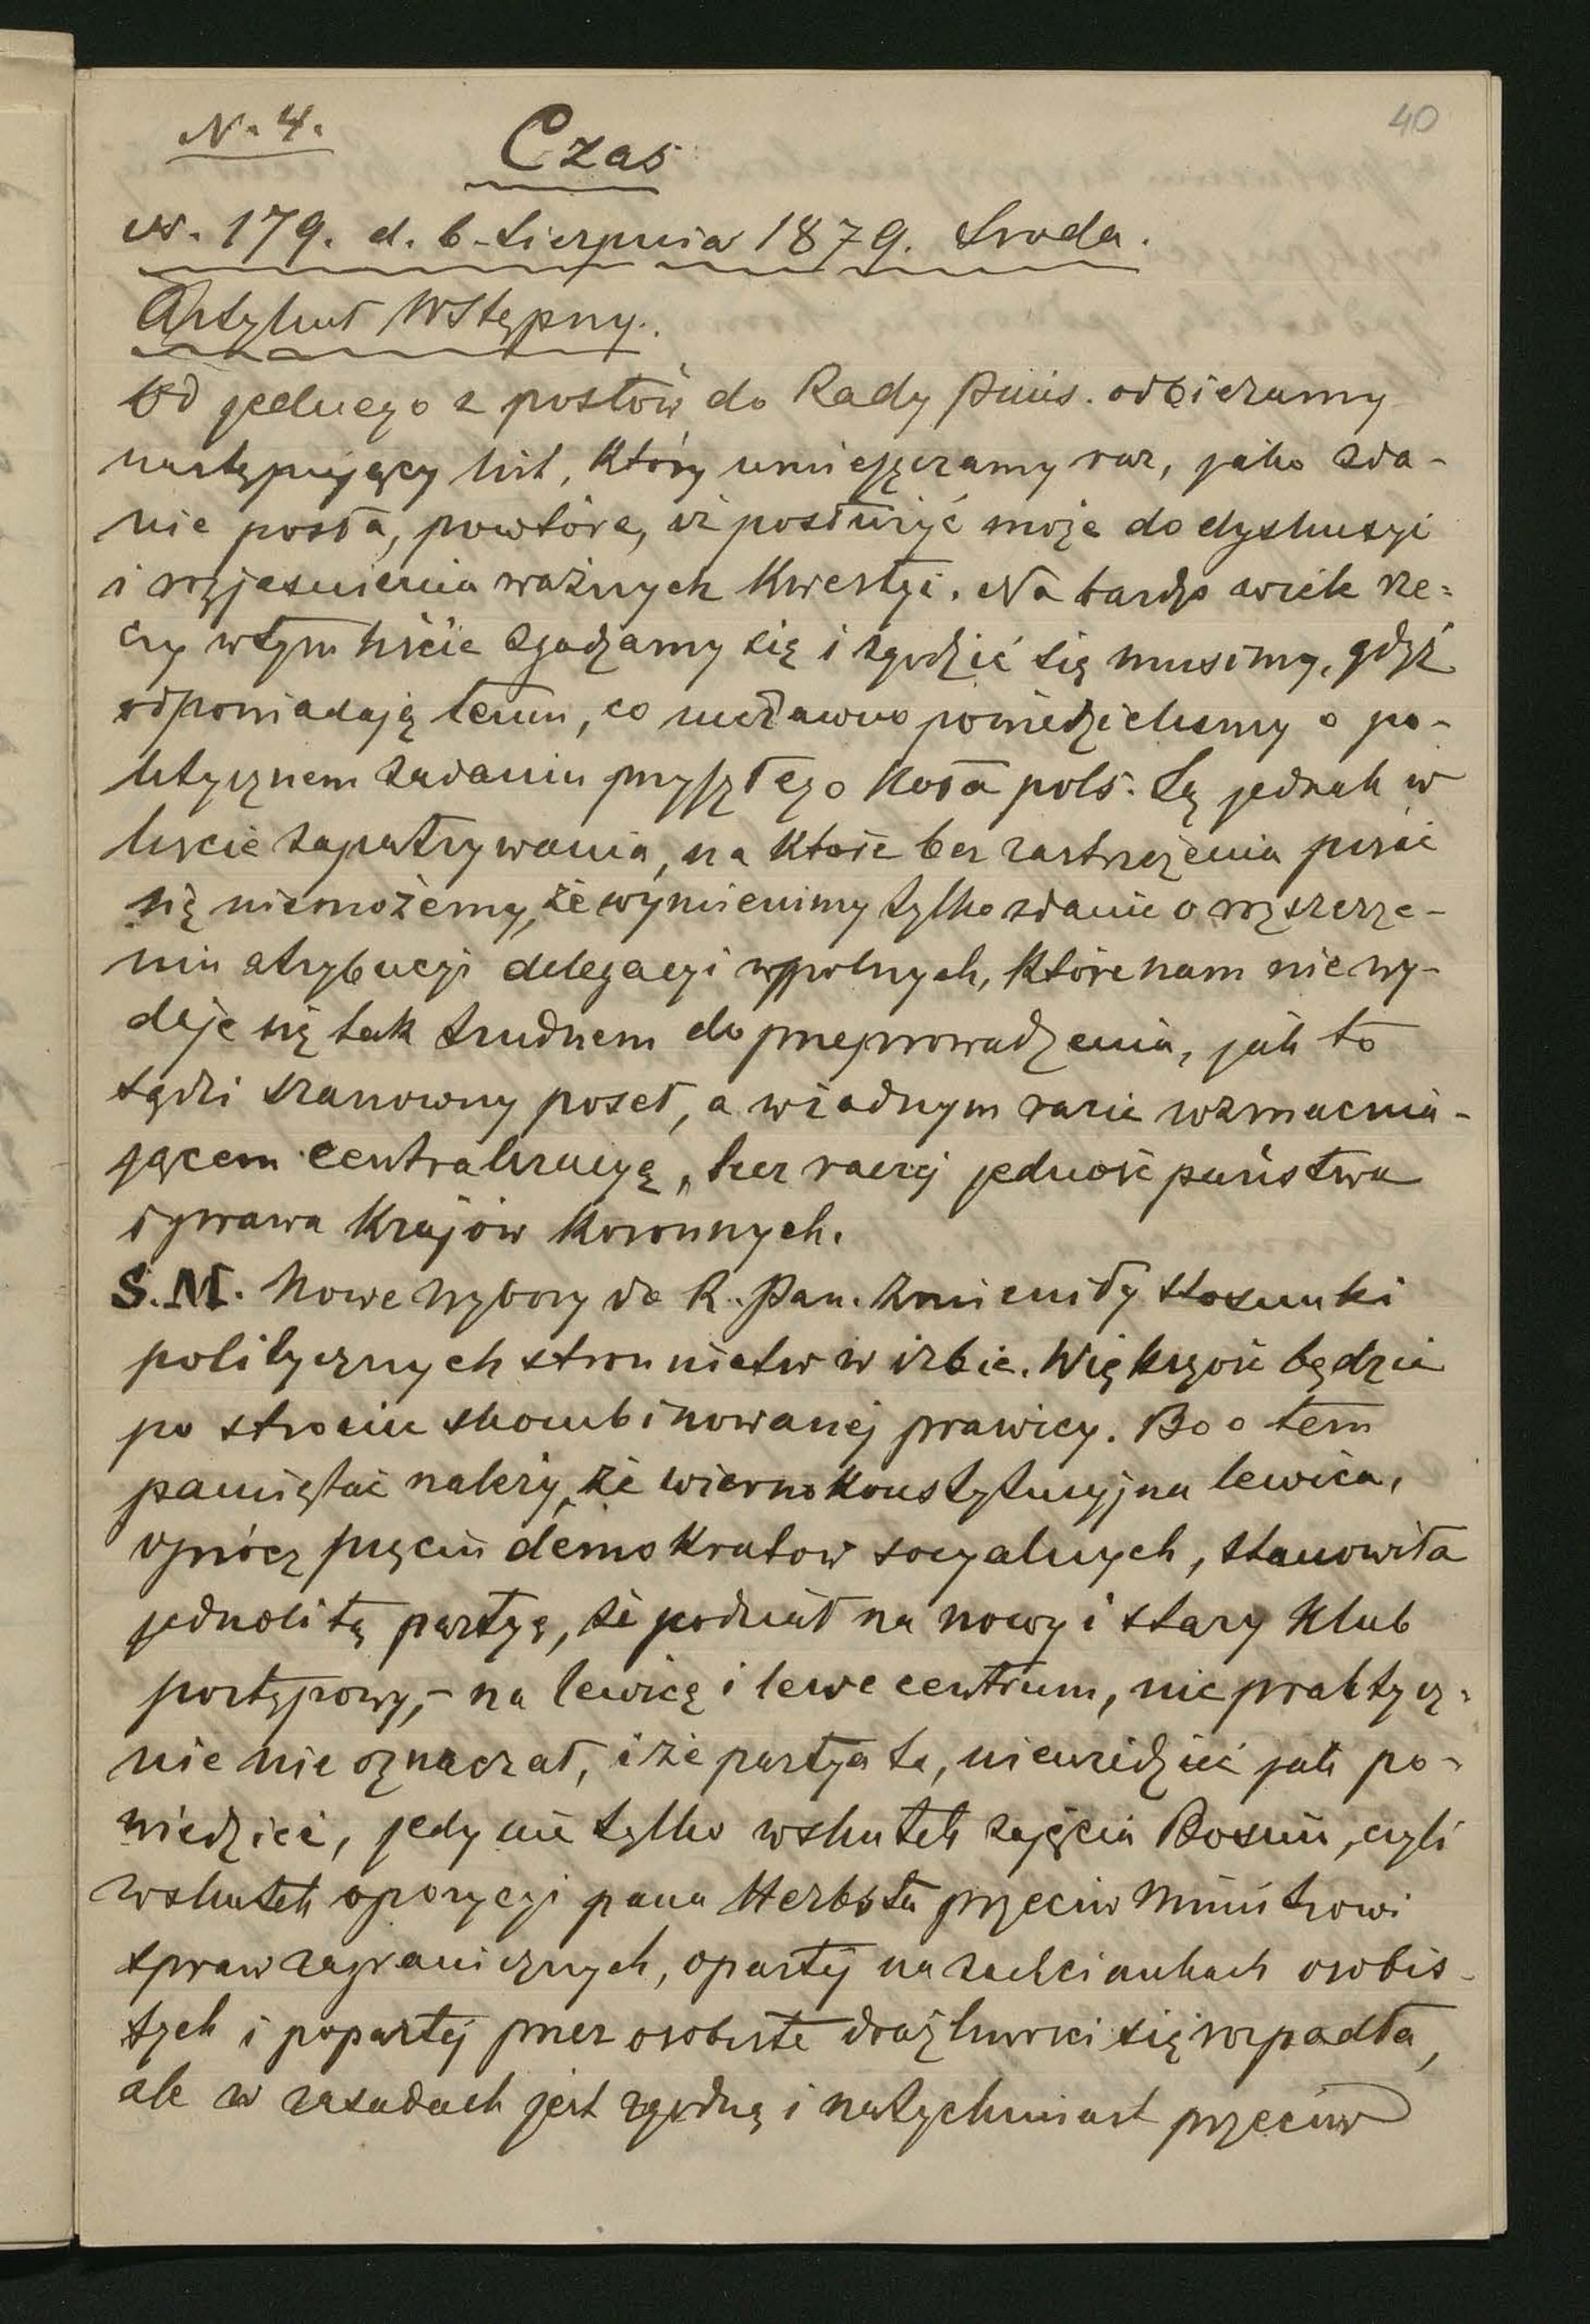 N. 4.
40
Czas
nr. 179. d. 6. Sierpnia 1879. Sroda.
Artykuł Wstępny.
Od jednego z posłów do Rady pańs. odbieramy
następujący list, który umieszczamy raz, jako zda-
nie posła, powtóre, iż posłużyć może do dyskusyi
i wyjaśnienia ważnych kwestyi. Na bardzo wiele rze-
czy w tym liście zgadzamy się i zgodzić się musimy, gdyż
odpowiadają temu, co niedawno powiedzieliśmy o po-
litycznem zadaniu przyszłego koła pols. Są jednak w
liście zapatrywania, na które bez zastrzeżenia pisać
się niemożemy, że wymienimy tylko zdanie o rozszerze-
niu atrybucyi delegacyi wspolnych, które nam nie wy-
daje się tak trudnem do przeprowadzenia, jak to
sądzi szanowny poseł, a w żadnym razie wzmacnia-
jącem centralizacyę, lecz raczej jedność państwa
i prawa krajów koronnych.
S.M. Nowe wybory do R. Pan. zmieniły stosunki
politycznych stronnictw w izbie. Większość będzie
po stronie skombinowanej prawicy. Bo o tem
pamiętać należy, że wiernokonstytucyjna lewica,
oprócz pięciu demokratow socyalnych, stanowiła
jednolitą partyę, że podział na nowy i stary klub
postępowy, – na lewicę i lewe centrum, nic praktycz-
nie nie oznaczał, i że partya ta, niewidzieć jak po-
wiedzieć, jedynie tylko wskutek zajęcia Bosnii, czyli
wskutek opozycyi pana Herbsta przeciw Ministrowi
spraw zagranicznych, opartej na zachciankach osobis-
tych i popartej przez osobiste drażliwości się rozpadła,
ale w zasadach jest zgodną i natychmiast przeciw